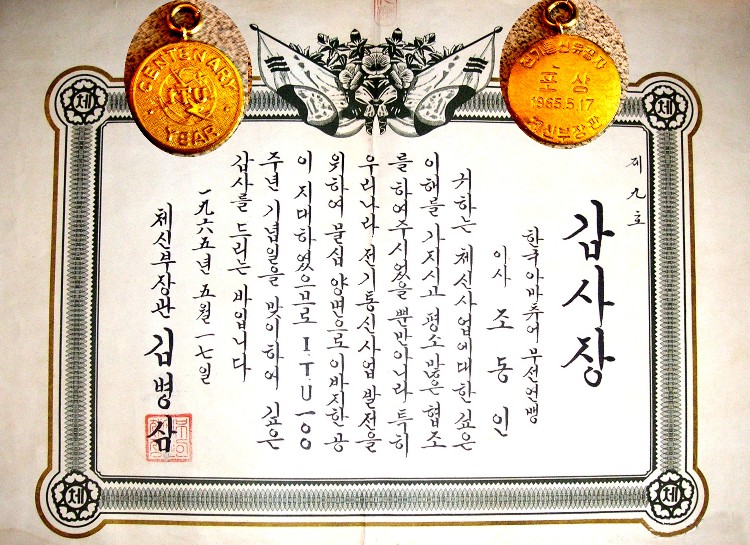 CENTENARY
ITU
YEAR
전기통신유공자
포상
1965.5.17
체신부장관
제九호
감사장
한국아마튜어무선연맹
이사 조동인
귀하는 체신사업에대한 깊은
이해를 가지시고 평소 많은 협조
를 하여주시었을 뿐만아니라 특히
우리나라 전기통신사업 발전을
위하여 물심 양면으로 이바지한 공
이 지대하였으므로 I.T.U 一〇〇
주년 기념일을 맞이하여 깊은
감사를 드리는 바입니다
一九六五년 五월 一七일
체신부장관 김병삼
체
체
체
체